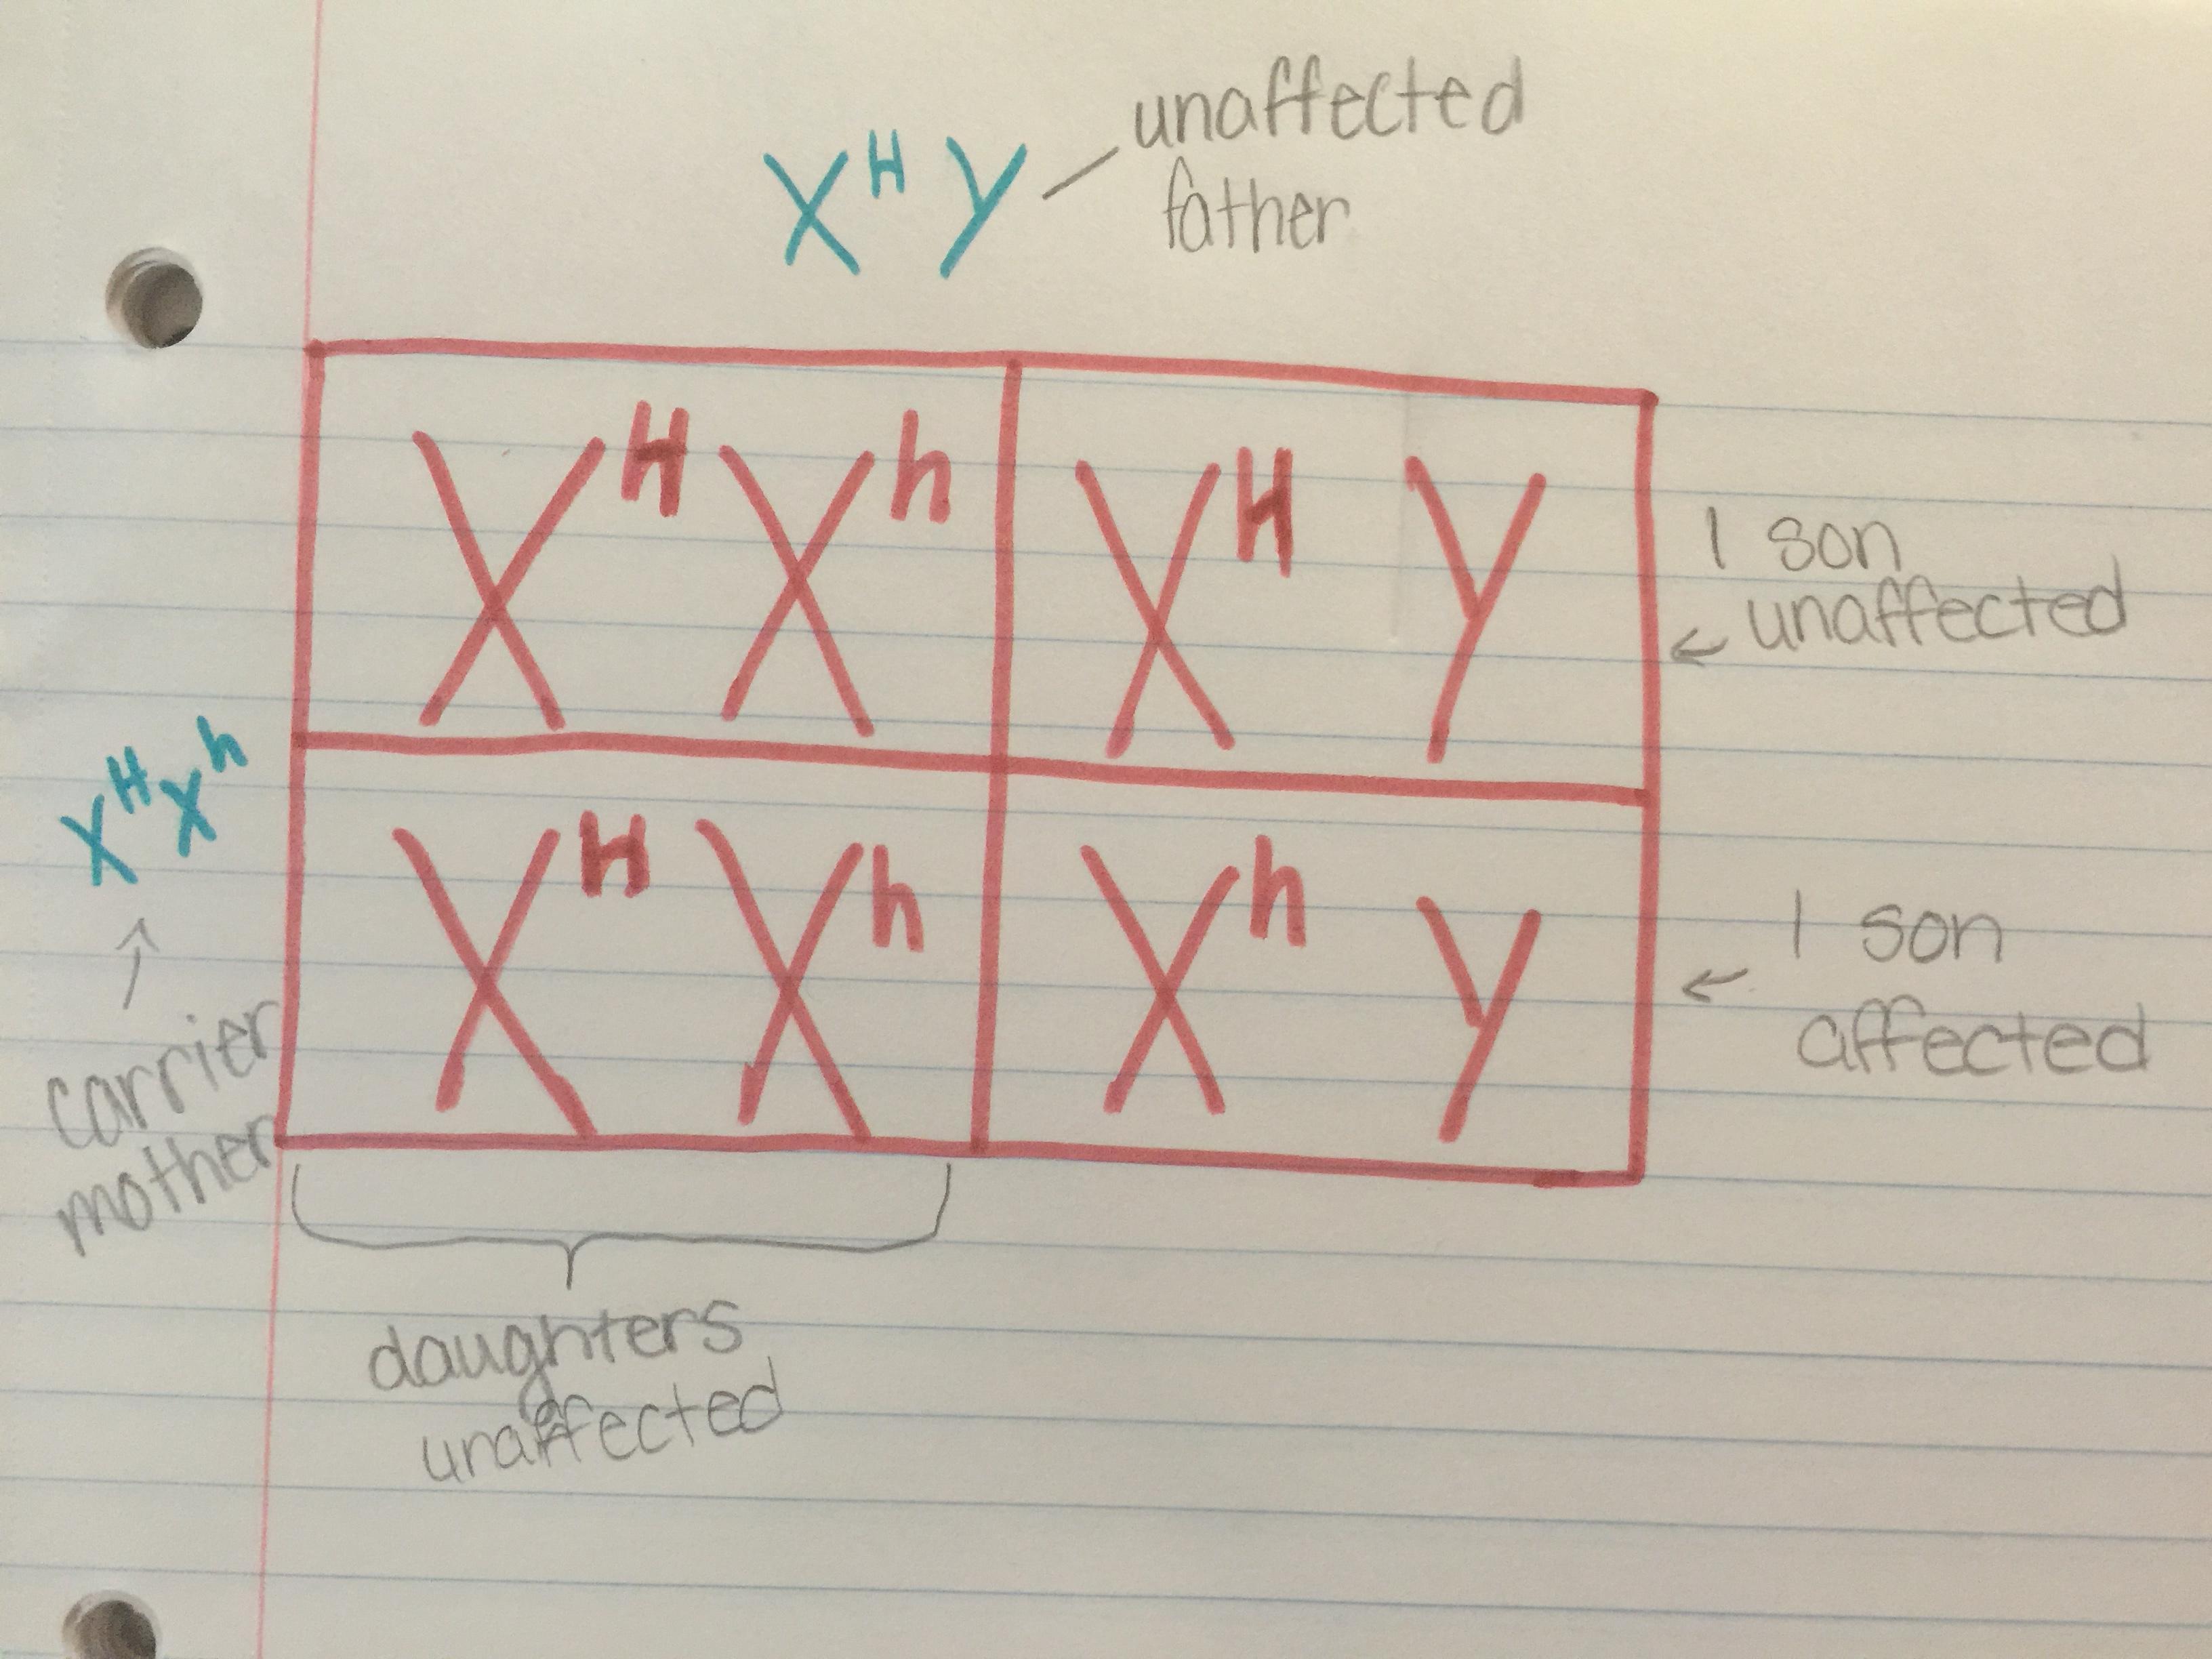 X^H Y
unaffected
father
X^H X^h
X^H Y
1 son
unaffected
X^H X^h
carrier
mother
X^H X^h
X^h Y
1 son
affected
daughters
unaffected